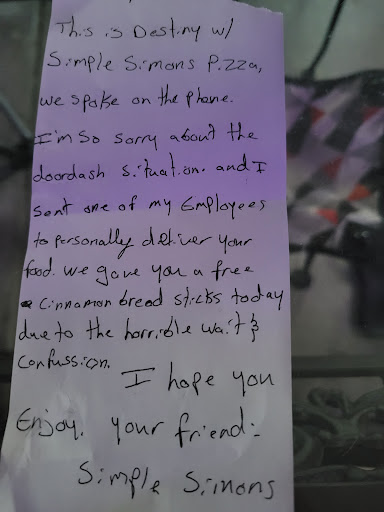 This is Destiny w/
Simple Simons Pizza,
we spoke on the phone.
I'm so sorry about the
doordash situation. and I
sent one of my Employees
to personally deliver your
food. we gave you a free
cinnamon bread sticks today
due to the horrible wait &
confussion.
I hope you
Enjoy. your friend:
Simple Simons